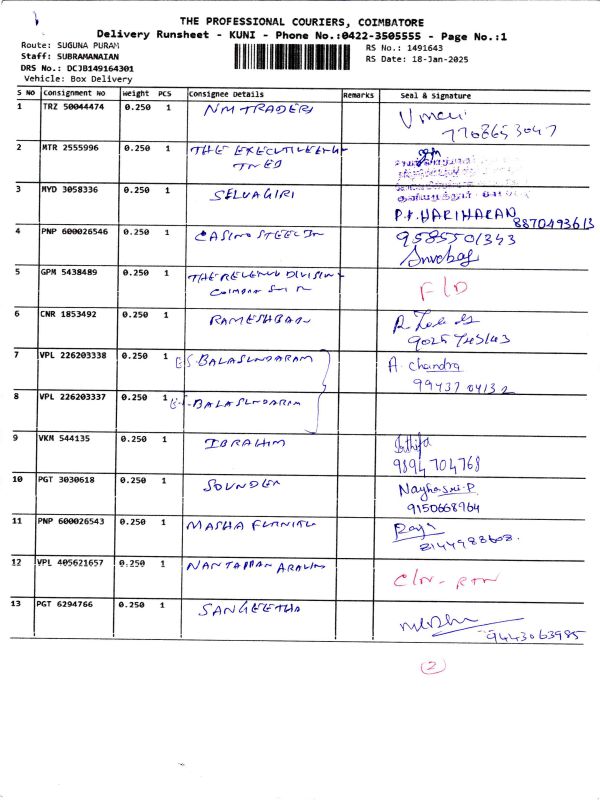 THE PROFESSIONAL COURIERS, COIMBATORE
Delivery Runsheet - KUNI - Phone No.:0422-3505555 - Page No.:1
Route: SUGUNA PURAM
RS No.: 1491643
Staff: SUBRAMANAIAN
RS Date: 18-Jan-2025
DRS No.: DCJB149164301
Vehicle: Box Delivery
S NO Consignment No Weight PCS Consignee Details Remarks Seal & Signature
1 TRZ 50044474 0.250 1 NM TRADERS
7708653047
2 MTR 2555996 0.250 1 THE EXECUTIVE
3 MYD 3058336 0.250 1 SELVAGIRI
P.T. HARIHARAN
8870493613
4 PNP 600026546 0.250 1 CASINO STEEL IN 9585501343
5 GPM 5438489 0.250 1 THE REVENUE DIVISION F/D
6 CNR 1853492 0.250 1 RAMESHBABU
9025745143
7 VPL 226203338 0.250 1 E.S. BALASUNDARAM A. chandra
99437 04132
8 VPL 226203337 0.250 1 E.S. BALASUNDARAM
9 VKM 544135 0.250 1 IBRAHIM
9894704768
10 PGT 3030618 0.250 1 SOUNDER Nayhasri.P
9150668964
11 PNP 600026543 0.250 1 MASHA FURNITU
8144988608.
12 VPL 405621657 0.250 1 C/N - RTN
13 PGT 6294766 0.250 1 SANGEETHA
9443063985
2